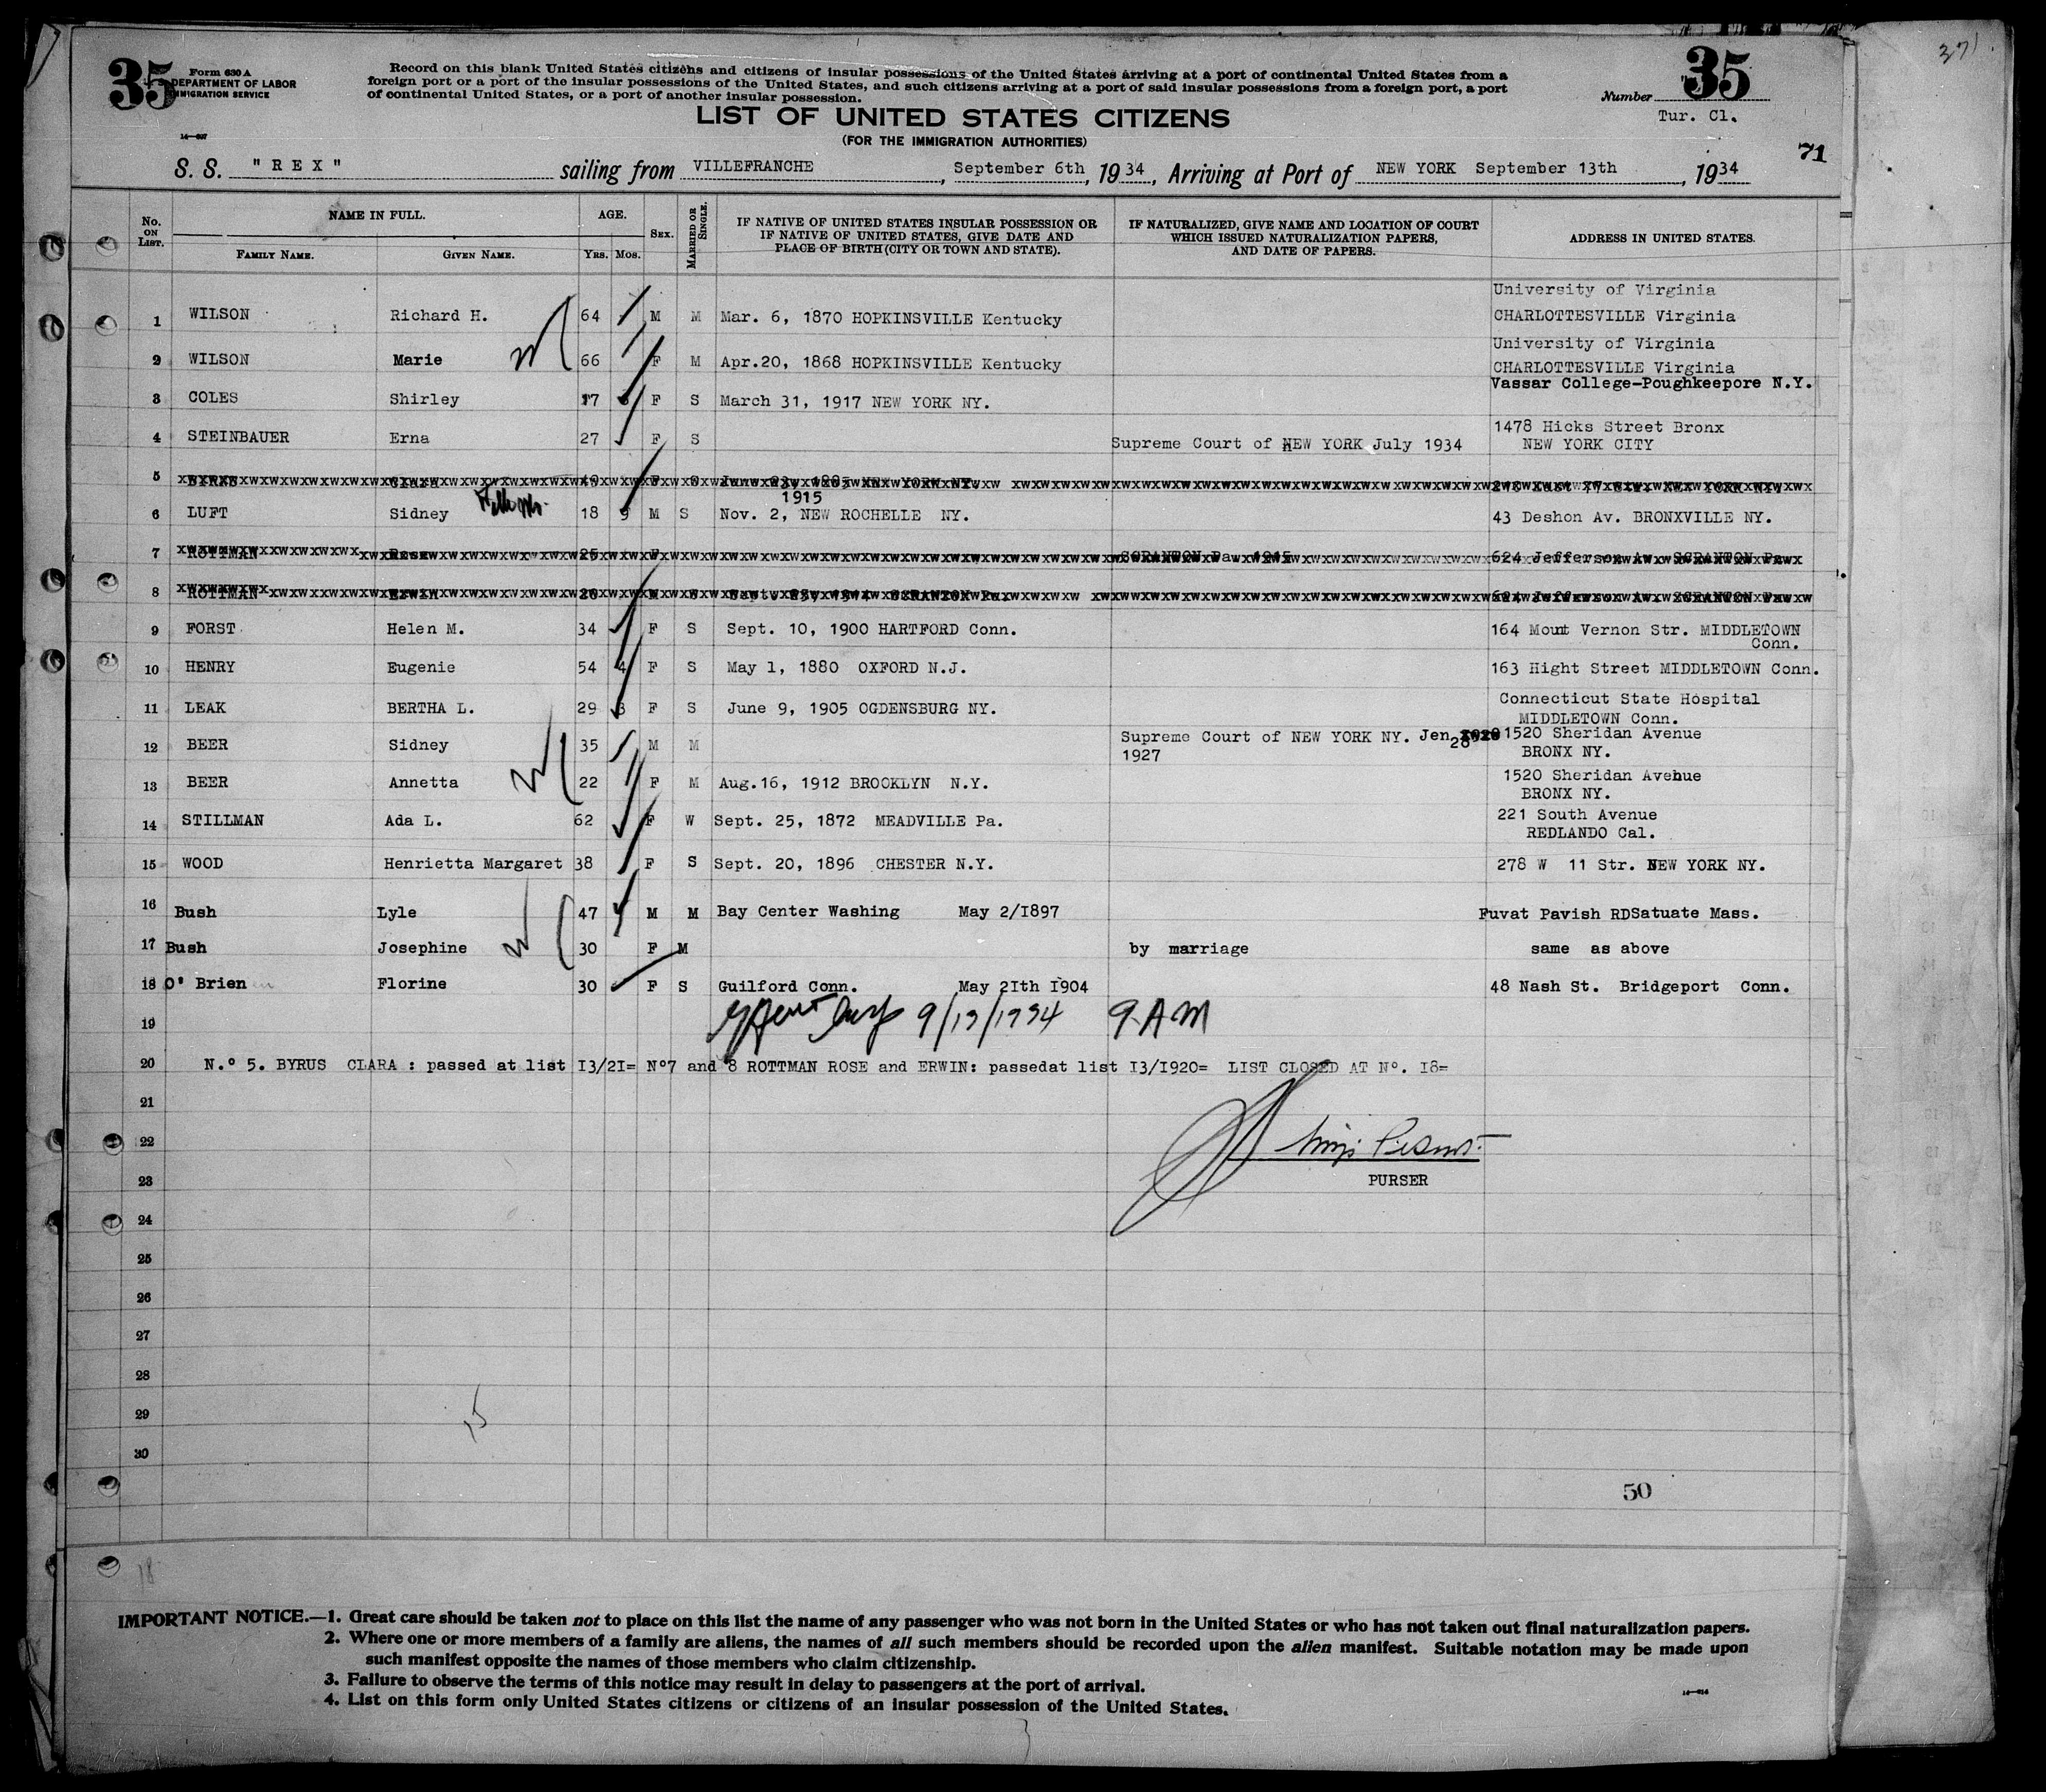 371
35
Form 630 A
DEPARTMENT OF LABOR
IMMIGRATION SERVICE
Record on this blank United States citizens and citizens of insular possessions of the United States arriving at a port of continental United States from a
foreign port or a port of the insular possessions of the United States, and such citizens arriving at a port of said insular possessions from a foreign port, a port
of continental United States, or a port of another insular possession.
Number 35
Tur. Cl.
LIST OF UNITED STATES CITIZENS
(FOR THE IMMIGRATION AUTHORITIES)
71
S. S. "REX" sailing from VILLEFRANCHE, September 6th, 1934, Arriving at Port of NEW YORK September 13th, 1934
No. ON LIST. NAME IN FULL. FAMILY NAME. GIVEN NAME. AGE. YRS. MOS. SEX. MARRIED OR SINGLE. IF NATIVE OF UNITED STATES INSULAR POSSESSION OR IF NATIVE OF UNITED STATES, GIVE DATE AND PLACE OF BIRTH (CITY OR TOWN AND STATE). IF NATURALIZED, GIVE NAME AND LOCATION OF COURT WHICH ISSUED NATURALIZATION PAPERS, AND DATE OF PAPERS. ADDRESS IN UNITED STATES.
University of Virginia
1 WILSON Richard H. 64 M M Mar. 6, 1870 HOPKINSVILLE Kentucky CHARLOTTESVILLE Virginia
University of Virginia
2 WILSON Marie 66 F M Apr.20, 1868 HOPKINSVILLE Kentucky CHARLOTTESVILLE Virginia
Vassar College-Poughkeepore N.Y.
3 COLES Shirley 17 F S March 31, 1917 NEW YORK NY.
4 STEINBAUER Erna 27 F S Supreme Court of NEW YORK July 1934 1478 Hicks Street Bronx
NEW YORK CITY
5
1915
6 LUFT Sidney 18 9 M S Nov. 2, NEW ROCHELLE NY. 43 Deshon Av. BRONXVILLE NY.
7 ROTTMAN Rose 25 F SCRANTON Pa. 1915 624 Jefferson Av. SCRANTON Pa.
8 ROTTMAN
9 FORST Helen M. 34 F S Sept. 10, 1900 HARTFORD Conn. 164 Mount Vernon Str. MIDDLETOWN
Conn.
10 HENRY Eugenie 54 4 F S May 1, 1880 OXFORD N.J. 163 Hight Street MIDDLETOWN Conn.
11 LEAK BERTHA L. 29 3 F S June 9, 1905 OGDENSBURG NY. Connecticut State Hospital
MIDDLETOWN Conn.
12 BEER Sidney 35 M M Supreme Court of NEW YORK NY. Jen 28 1520 Sheridan Avenue
1927 BRONX NY.
13 BEER Annetta 22 F M Aug.16, 1912 BROOKLYN N.Y. 1520 Sheridan Avenue
BRONX NY.
14 STILLMAN Ada L. 62 F W Sept. 25, 1872 MEADVILLE Pa. 221 South Avenue
REDLANDO Cal.
15 WOOD Henrietta Margaret 38 F S Sept. 20, 1896 CHESTER N.Y. 278 W 11 Str. NEW YORK NY.
16 Bush Lyle 47 M M Bay Center Washing May 2/I897 Fuvat Pavish RDSatuate Mass.
17 Bush Josephine 30 F M by marriage same as above
18 O' Brien Florine 30 F S Guilford Conn. May 2Ith I904 48 Nash St. Bridgeport Conn.
19 9/13/1934 9 AM
20 N.º 5. BYRUS CLARA : passed at list I3/2I= Nº7 and 8 ROTTMAN ROSE and ERWIN: passedat list I3/I920= LIST CLOSED AT Nº. I8=
21
22
23 PURSER
24
25
26
27
28
29
30
15
50
18
IMPORTANT NOTICE.—1. Great care should be taken not to place on this list the name of any passenger who was not born in the United States or who has not taken out final naturalization papers.
2. Where one or more members of a family are aliens, the names of all such members should be recorded upon the alien manifest. Suitable notation may be made upon
such manifest opposite the names of those members who claim citizenship.
3. Failure to observe the terms of this notice may result in delay to passengers at the port of arrival.
4. List on this form only United States citizens or citizens of an insular possession of the United States.